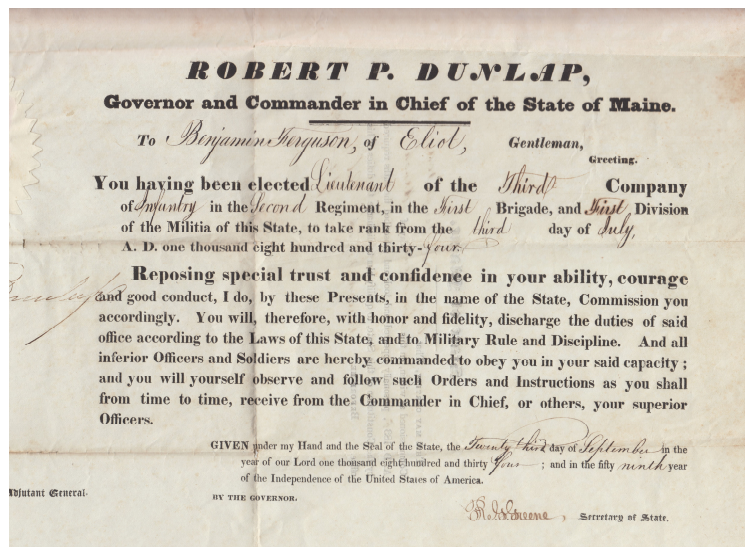 ROBERT P. DUNLAP,
Governor and Commander in Chief of the State of Maine.
To Benjamin Ferguson, of Eliot, Gentleman,
Greeting.
You having been elected Lieutenant of the Third Company
of Infantry in the Second Regiment, in the First Brigade, and First Division
of the Militia of this State, to take rank from the third day of July,
A. D. one thousand eight hundred and thirty-four
Reposing special trust and confidence in your ability, courage
and good conduct, I do, by these Presents, in the name of the State, Commission you
accordingly. You will, therefore, with honor and fidelity, discharge the duties of said
office according to the Laws of this State, and to Military Rule and Discipline. And all
inferior Officers and Soldiers are hereby commanded to obey you in your said capacity ;
and you will yourself observe and follow such Orders and Instructions as you shall
from time to time, receive from the Commander in Chief, or others, your superior
Officers.
GIVEN under my Hand and the Seal of the State, the Twenty third day of September in the
year of our Lord one thousand eight hundred and thirty four ; and in the fifty ninth year
of the Independence of the United States of America.
BY THE GOVERNOR.
Adjutant General.
Greene, Secretary of State.